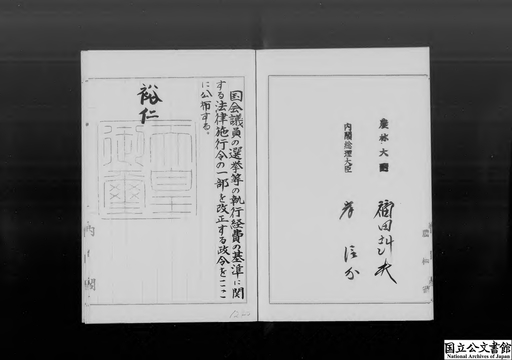 農林大臣
福田赳夫
内閣総理大臣
岸信介
国会議員の選挙等の執行経費の基準に関
する法律施行令の一部を改正する政令をここ
に公布する。
裕仁
天皇
御璽
内閣
国立公文書館
National Archives of Japan